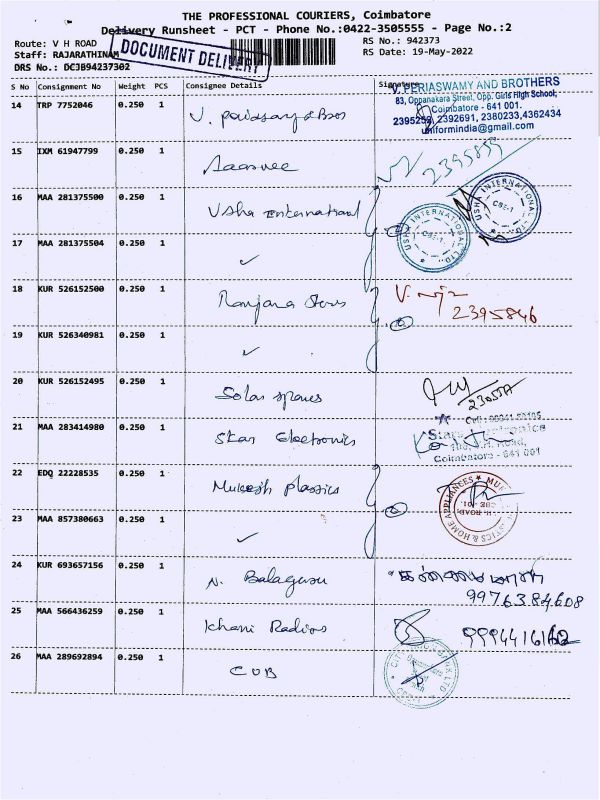 THE PROFESSIONAL COURIERS, Coimbatore
Delivery Runsheet - PCT - Phone No.:0422-3505555 - Page No.:2
Route: V H ROAD
RS No.: 942373
Staff: RAJARATHINAM
RS Date: 19-May-2022
DRS No.: DCJB94237302
DOCUMENT DELIVERY
S No Consignment No Weight PCS Consignee Details Signature
V. PERIASWAMY AND BROTHERS
83, Oppanakara Street, Opp. Girls High School,
Coimbatore - 641 001.
2395259, 2392691, 2380233,4362434
uniformindia@gmail.com
14 TRP 7752046 0.250 1
15 IXM 61947799 0.250 1
2395855
16 MAA 281375500 0.250 1 Usha International
USHA INTERNATIONAL LTD. CBE-1
USHA INTERNATIONAL LTD. CBE-1
17 MAA 281375504 0.250 1 ✓
18 KUR 526152500 0.250 1 Ranjana Stores
2395846
19 KUR 526340981 0.250 1 ✓
20 KUR 526152495 0.250 1 Solar spares
21 MAA 283414980 0.250 1 Star Electronics
Coimbatore - 641 001
22 EDQ 22228535 0.250 1 Mukesh plastics
23 MAA 857380663 0.250 1 ✓
24 KUR 693657156 0.250 1 N. Balaguru
9976384608
25 MAA 566436259 0.250 1 Khani Radios
26 MAA 289692894 0.250 1 CUB